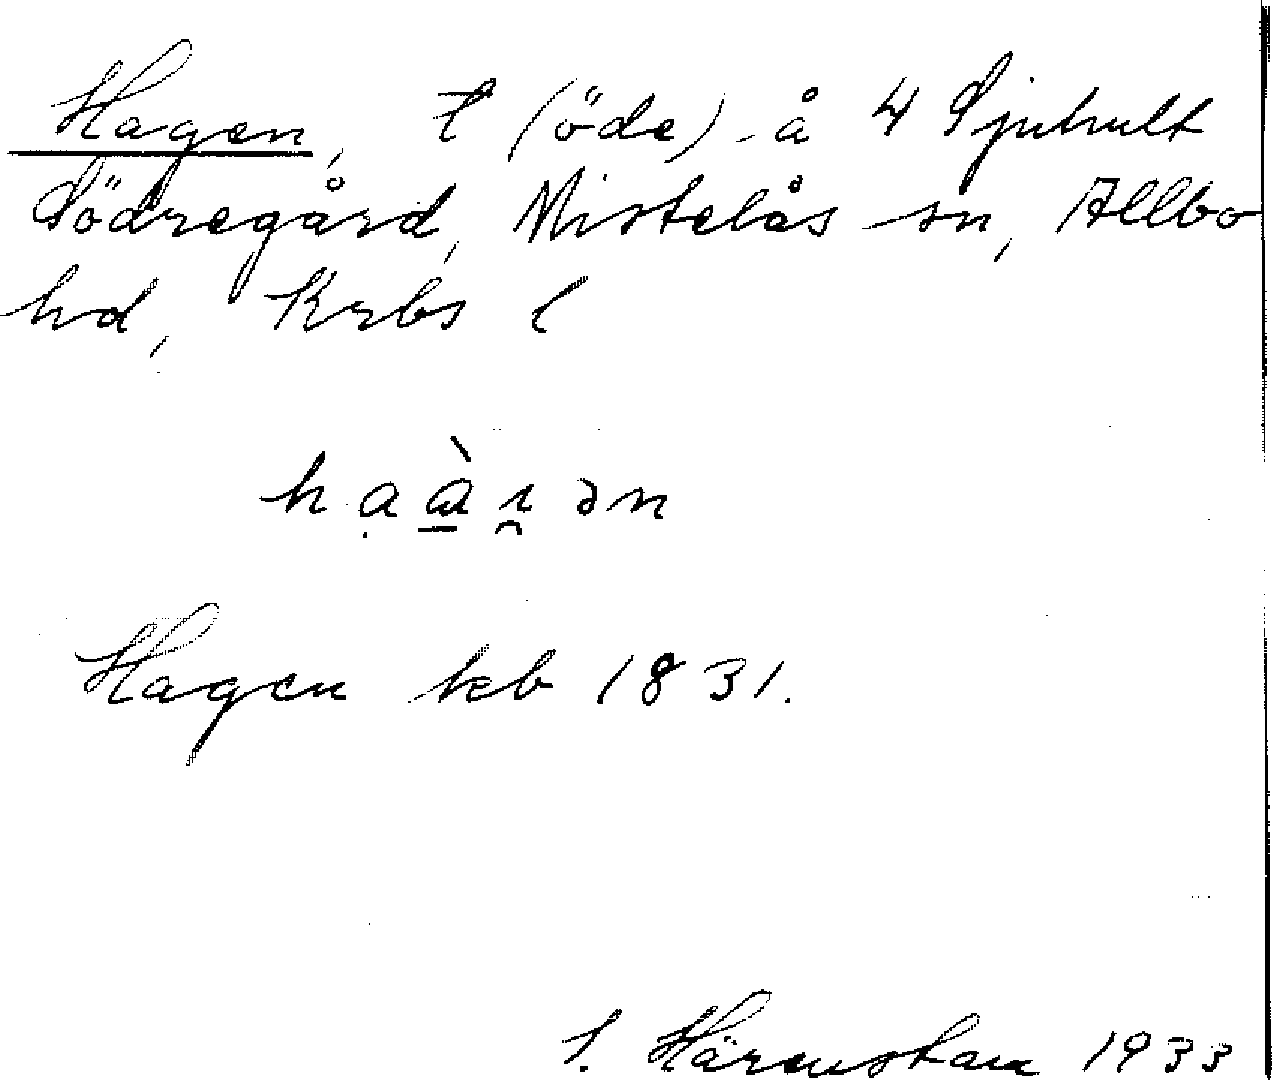 Hagen, t (öde) å 4 Sjuhult
Södregård, Mistelås sn, Allbo
hd, Krbs l
haàɩən
Hagen kb 1831.
S. Härenstam 1933